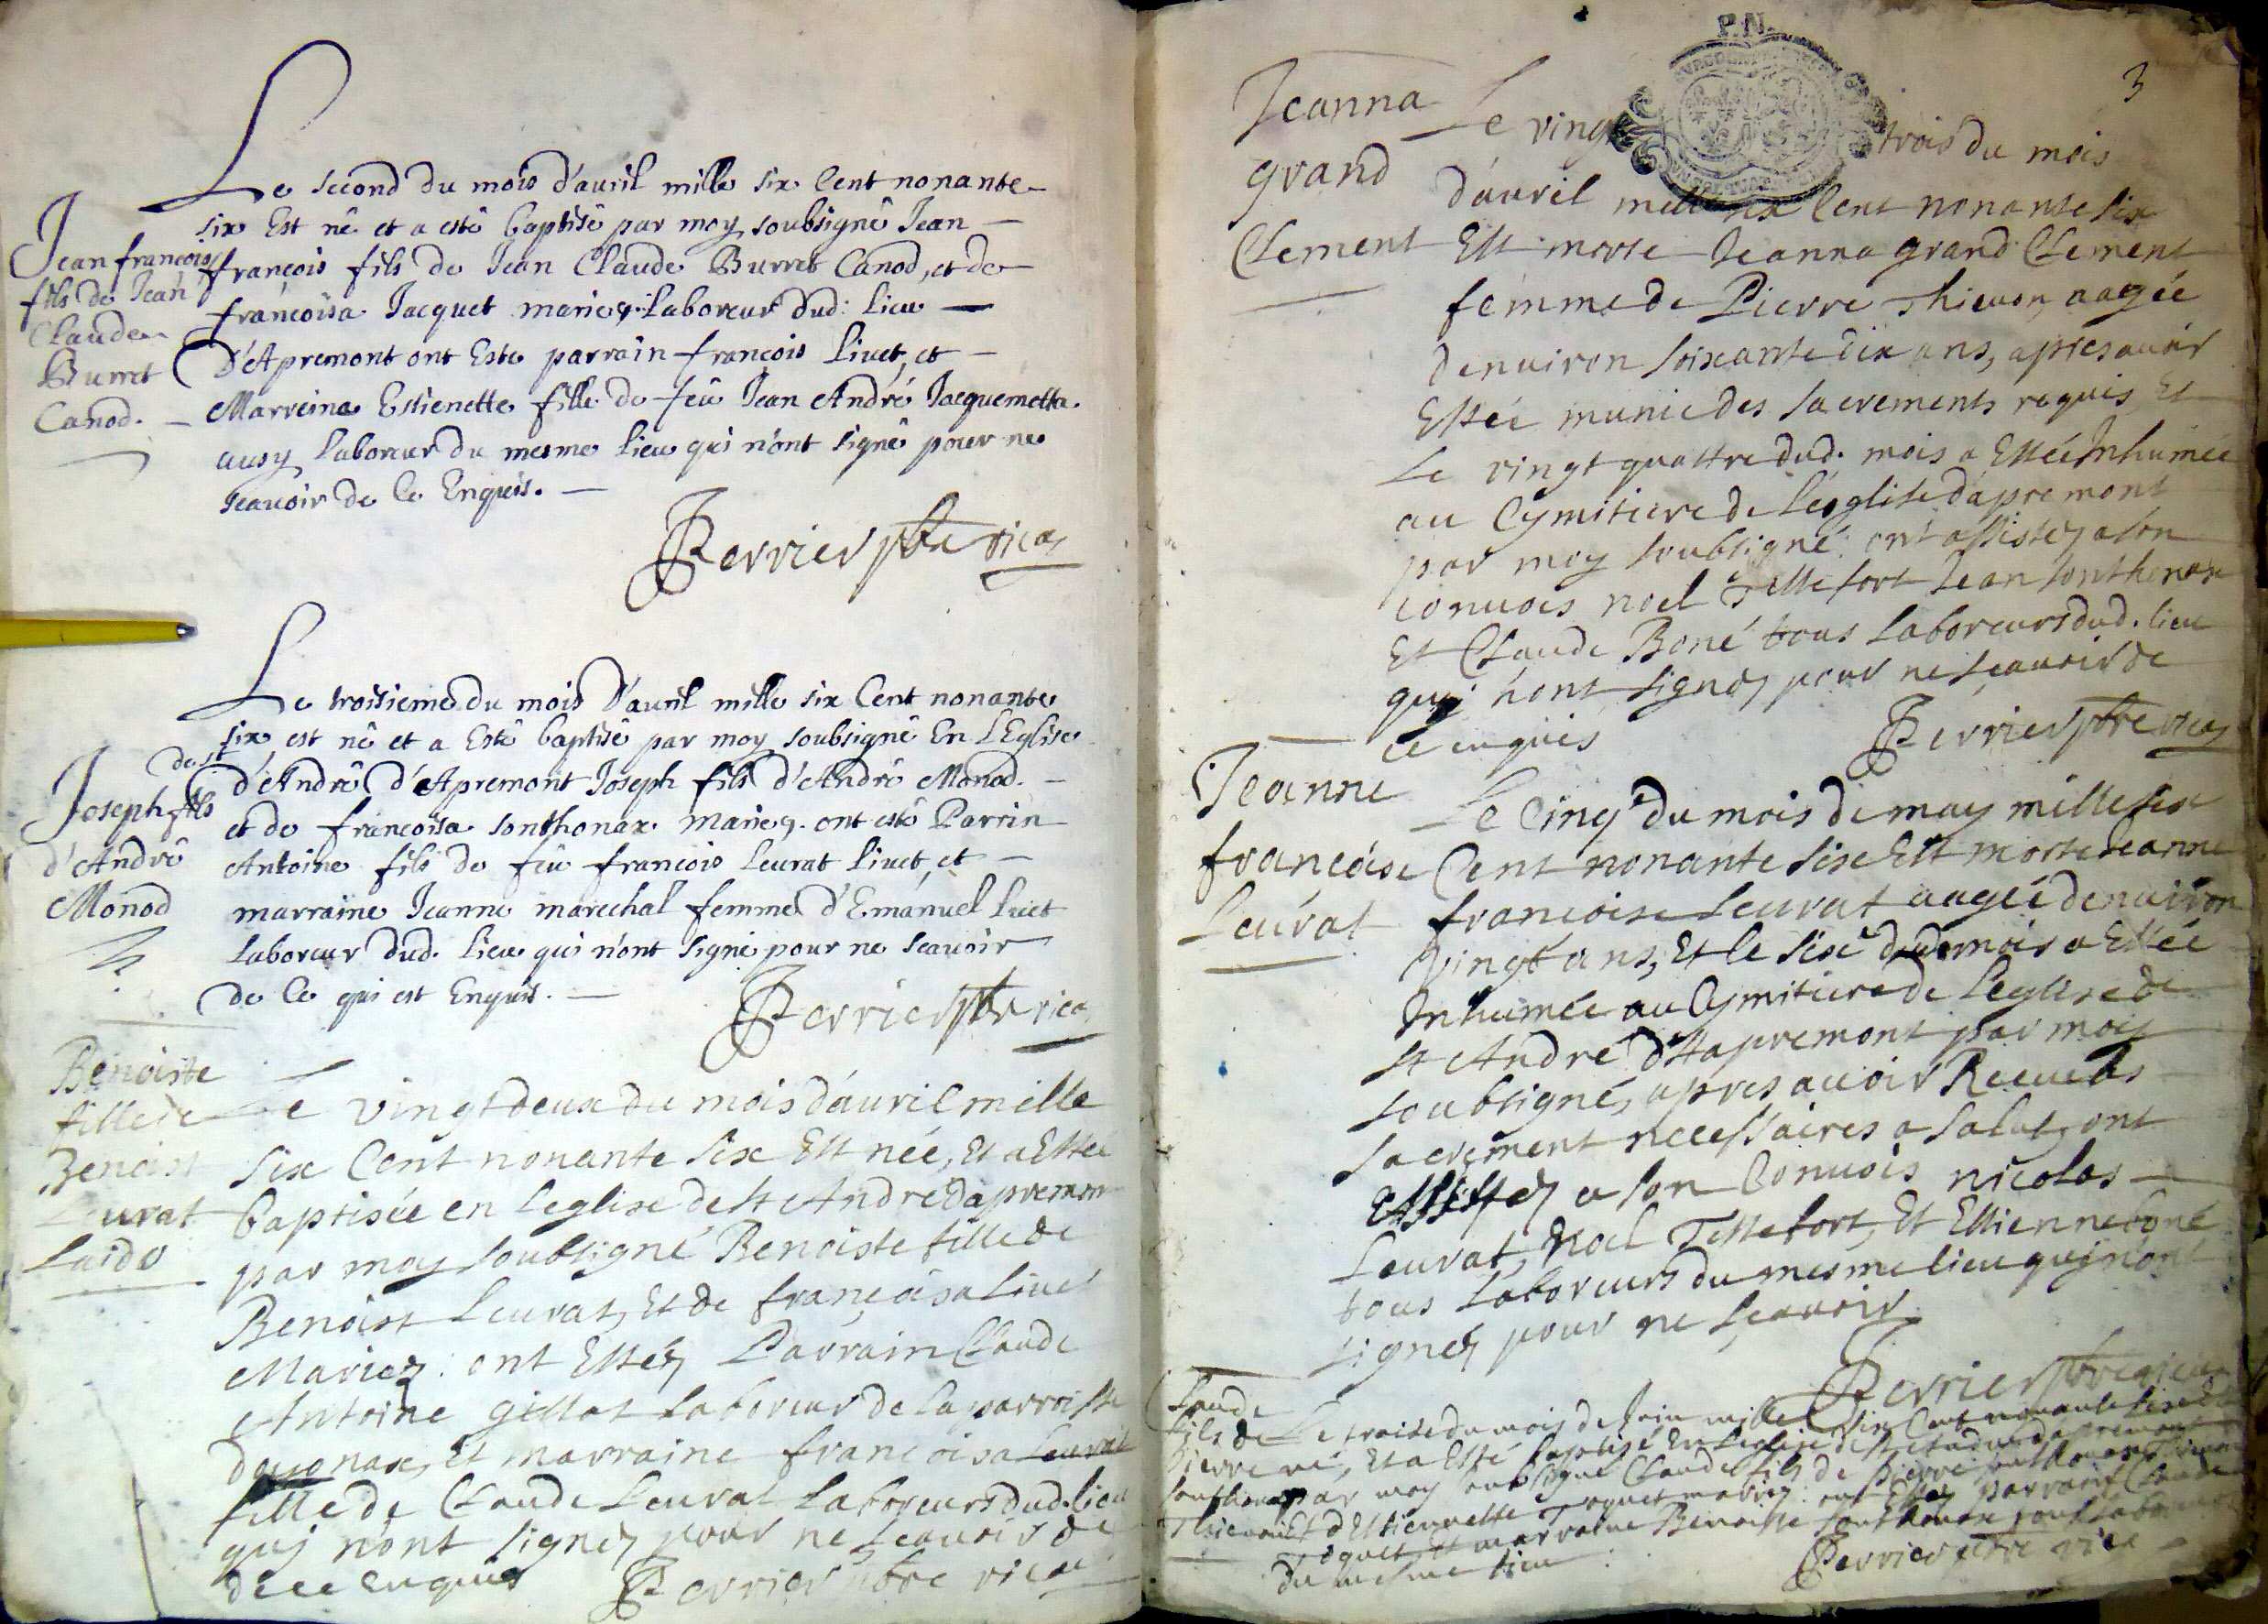 Jean françois
fils de Jean
Claude
Burret
Canod.
Le second du mois d'auril mille six Cent nonante
six Est né et a esté baptisé par moy soubsigné Jean
françois fils de Jean Claude Burret Canod, et de
françoisa Jacquet marieq. laboreur dud: lieu
D'Apremont ont Este parrain françois Liuet, et
Marreina Estienette fille de feû Jean André Jacquemetta
ausy laboreur du mesme lieu qui n'ont signé pour ne
scauoir de Ce Enquis.
Perrier pbre vicai
Joseph fils
d'André
Monod
Le troisieme du mois d'auril mille six Cent nonante
six est né et a Esté baptisé par moy soubsigné En L'Eglise
de st
d'André d'Apremont Joseph fils d'André Monod.
et de francoisa sonthonax marieq. ont esté Parrin
Antoine fils de feu francois Leurat liuet, et
marraine Jeanne marechal femme d'Emanuel liuet
laboreur dud. lieu qui n'ont signé pour ne scauoir
de Ce qui est Enquis.
Perrier pbr vica
Benoiste
fille de
Benoist
Leurat
Laido
Le vingt deux du mois d'auril mille
six Cent nonante six Est née, Et a Estée
baptisée en Leglise de st André dapremon
par moy soubsigné Benoiste fille de
Benoist Leurat, Et de françoisa Liuet
Mariez: ont Estéz Parrain Claude
Antoine gillat Laboreur de la parroisse
doyonax, Et marraine françoisa Leurat
fille de Claude Leurat Laboreurs dud. lieu
quj n'ont signéz pour ne scauoir de
de ce enquis
Perrier pbre vicai
3
P.N.
Jeanna
grand
Clement
Le vingt trois du mois
d'auril mille six Cent nonante six
Est morte Jeanna grand Clement
femme de Pierre Thieuon, aagée
denuiron soixante dix ans, apres auoir
Estée munie des sacrements requis Et
Le vingt quattre dud. mois a Estée Inhumée
au Cymitiere de Leglise dapremont
par moy soubsigné: ont assistéz a son
conuois noel Testefort Jean sonthonax
Et Claude Boné tous Laboreurs dud. lieu
quj n'ont signéz pour ne scauoir de
ce enquis
Perrier pbre vicai
Jeanne
françoise
Leurat
Le Cinq du mois de may mille six
Cent nonante six Est morte Jeanne
francoise Leurat aagée denuiron
vingt ans, Et le six dud. mois a Estée
Inhumée au Cymitiere de Leglise de
st André d'Aapremont par moy
soubsigné, apres auoir Receu les
sacrement necessaires a salut, ont
Assistéz a son Conuois nicolas
Leurat, Noel Testefort, Et Estienne boné
tous Laboreurs du mesme lieu quj n'ont
signéz pour ne scauoir
Perrier pbre vicai
Claude
fils de
Pierre
sonthonax
Thieuon
Le troise du mois de Juin mille six Cent nonante six Est
né, Et a Esté baptisé En Leglise de st André dapremont
par moy soubsigné Claude fils de Pierre sonthonax Thieuon
Et d'Estiennette Joquet mariez: ont Estéz parrain Claude
Joquet Et marraine Benoiste sonthonax
du mesme lieu
Perrier pbre vica